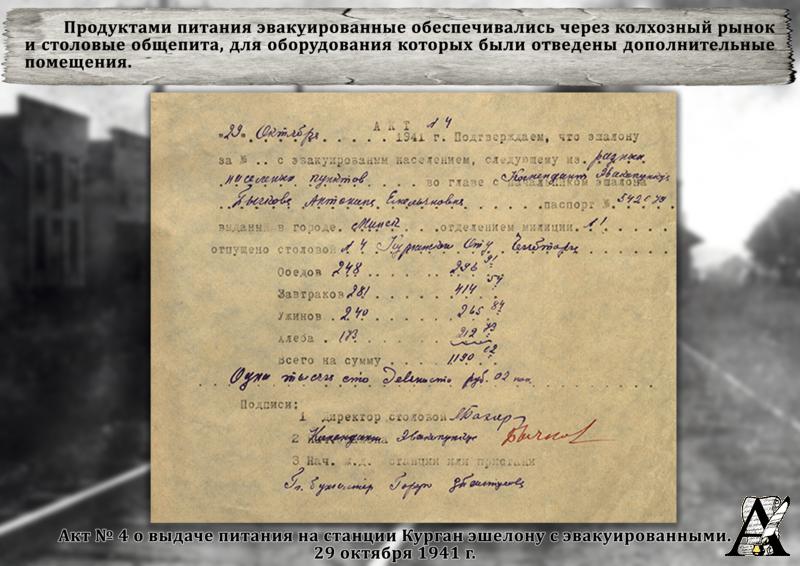 Продуктами питания эвакуированные обеспечивались через колхозный рынок
и столовые общепита, для оборудования которых были отведены дополнительные
помещения.
АКТ № 4
"29" Октября . . . . . 1941 г. Подтверждаем, что эшалону
за № . . с эвакуированым населением, следующему из. разных
населеных пунктов . . . . во главе с начальником эшалона Комендант Эвакопункта
Бычкова Антонина Емельяновна . . . . . паспорт № 542079
выданый в городе. Минск . . . отделением милиции. 11
отпущено столовой № 4
Обедов 248 . . . . . 296 91
Завтраков 281 . . . . 414 59
Ужинов . 240 . . . . 265 84
Хлеба . 173 . . . . 212 73
Всего на сумму . . . . 1190 02
Одна тысяча сто девяносто руб. 02 коп.
Подписи:
1 Директор столовой
2 Комендант Эвакопункта Бычкова
3 Нач. ж.д. станции или пристани
Гл. Бухгалтер
Акт № 4 о выдаче питания на станции Курган эшелону с эвакуированными.
29 октября 1941 г.